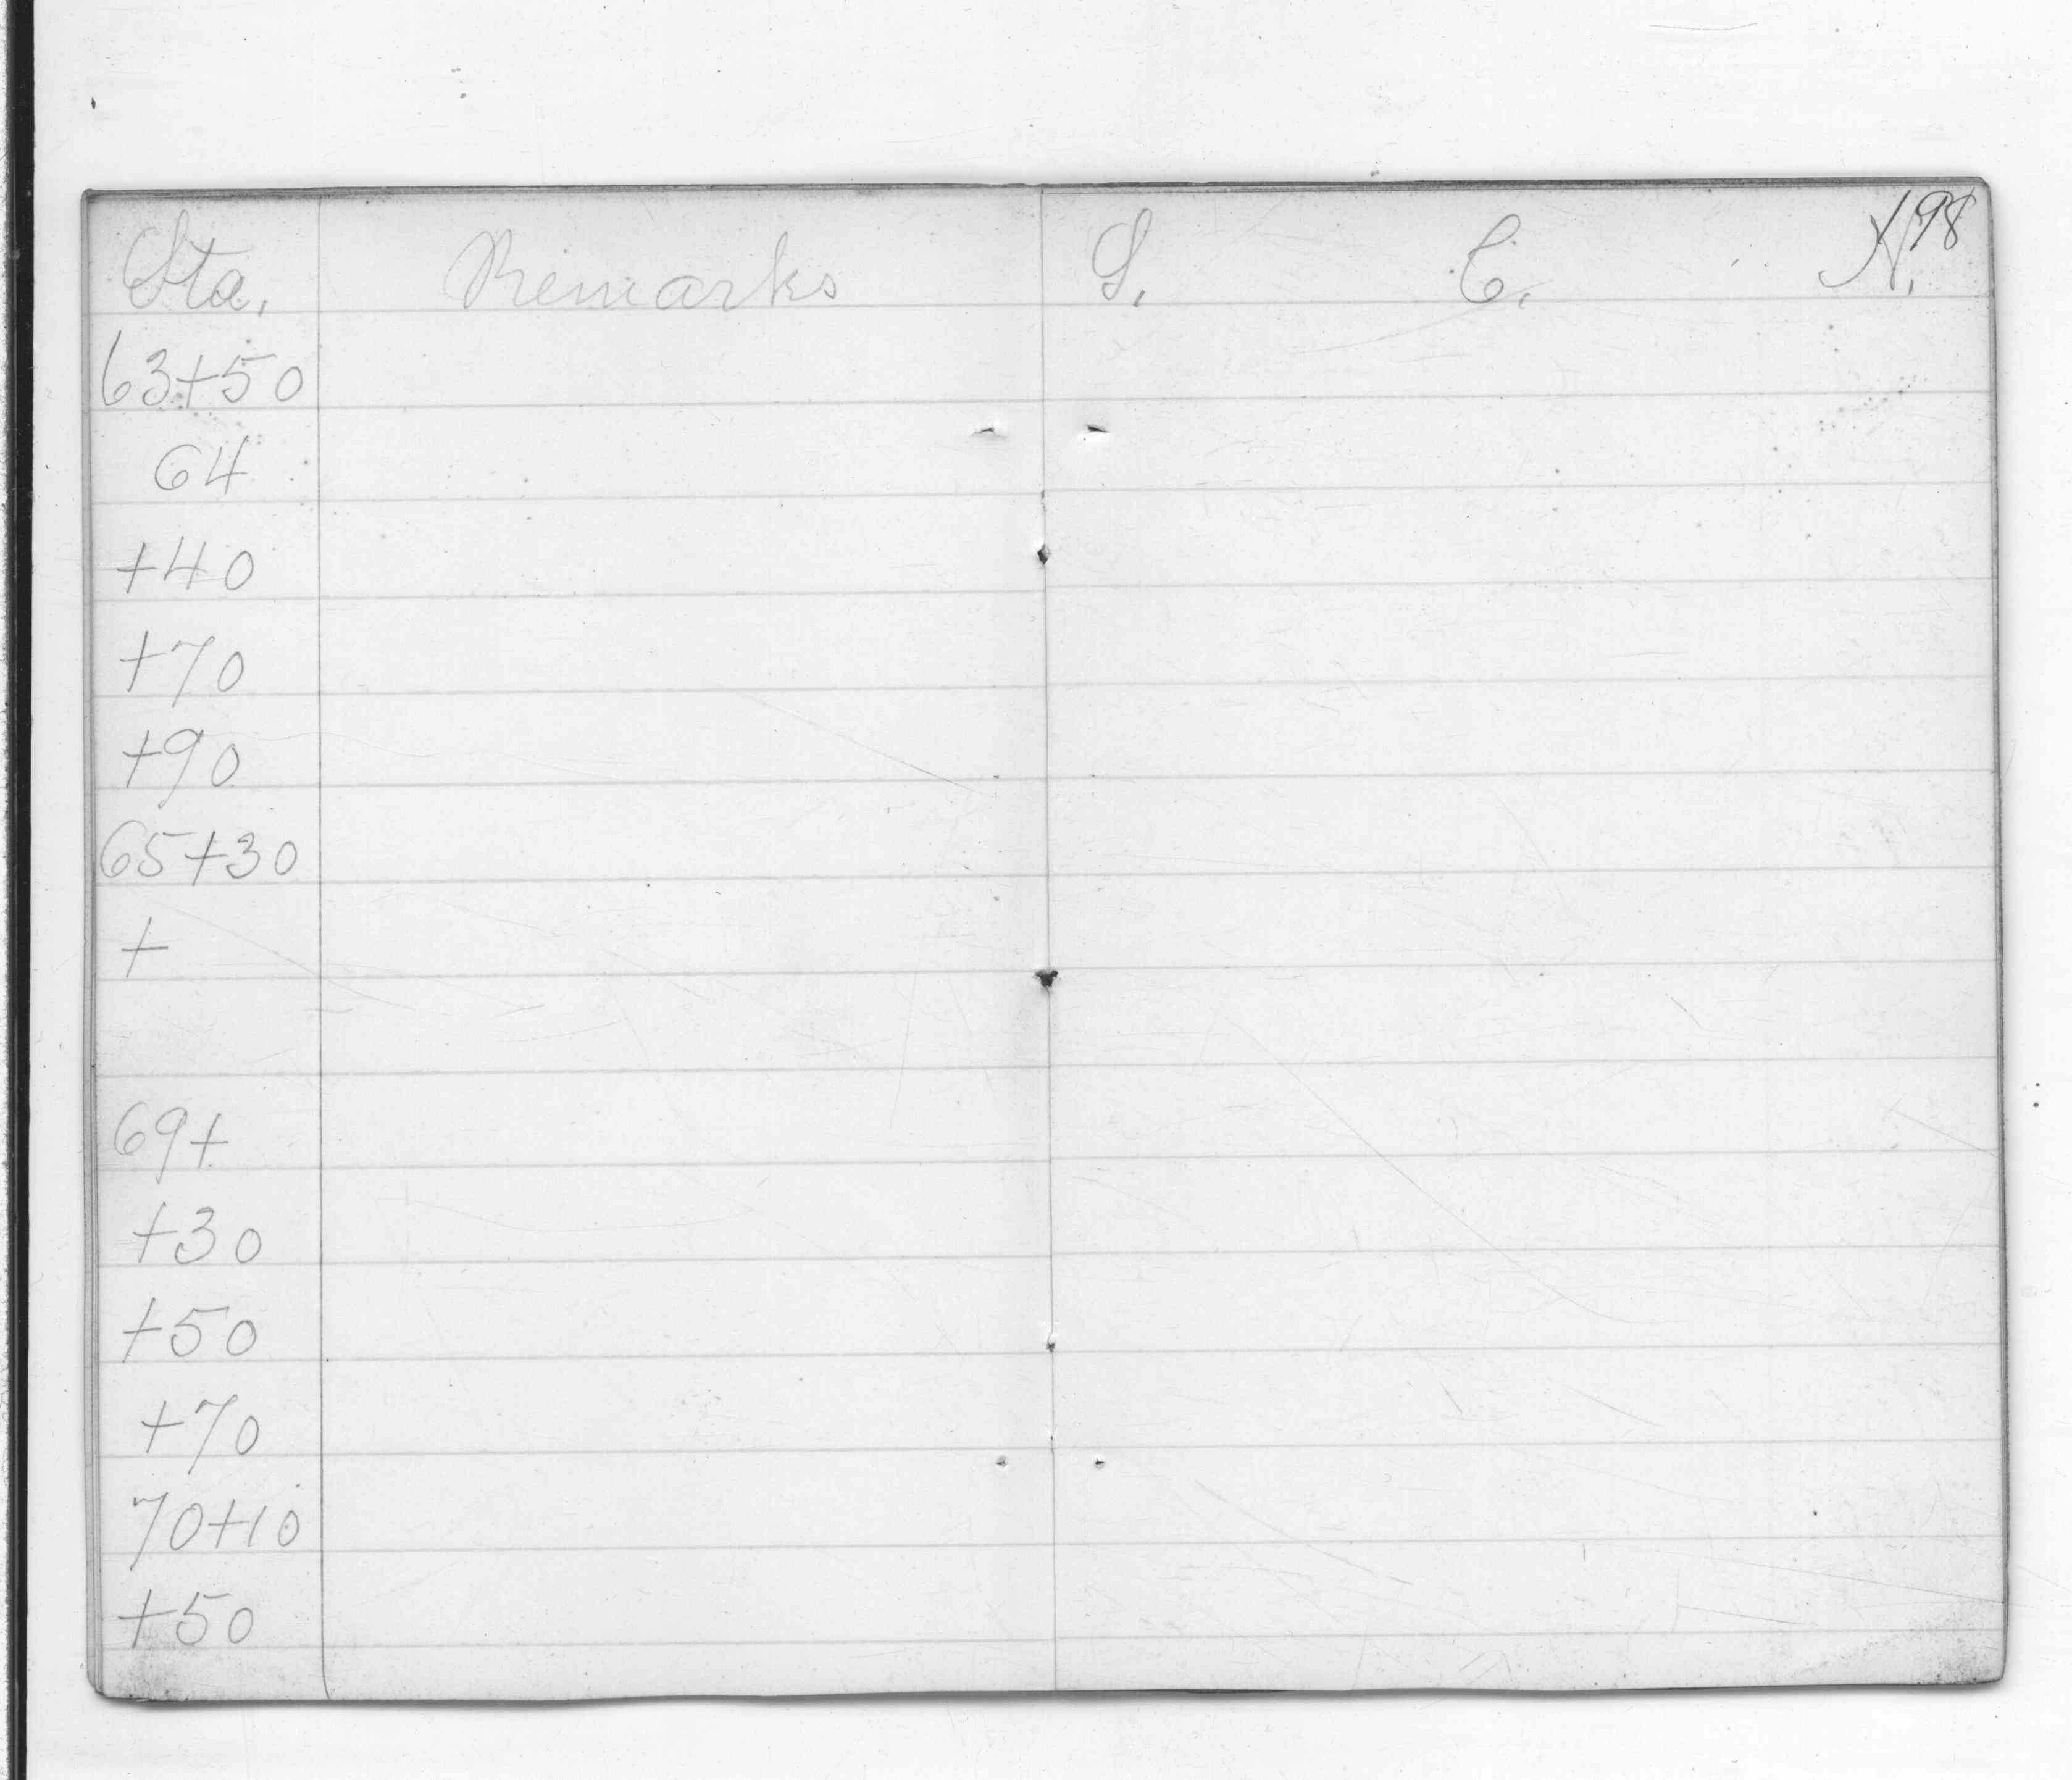 198
Sta. Remarks S. C. N.
63+50
64
+40
+70
+90
65+30
+
69+
+30
+50
+70
70+10
+50